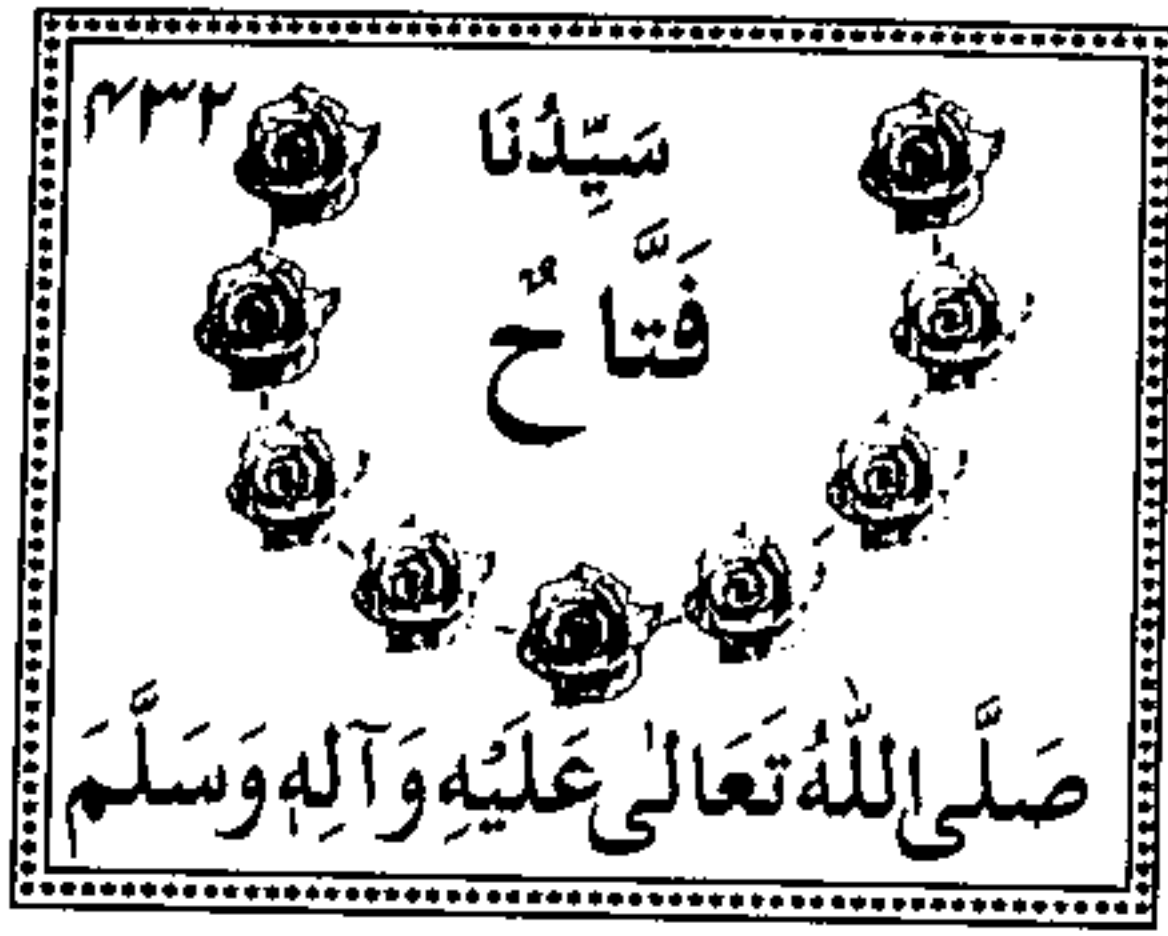 ۴۳۲
سَیِّدُنَا
فَتَّاحٌ
صَلَّى اللّٰهُ تَعَالٰى عَلَيْهِ وَآلِهٖ وَسَلَّمَ